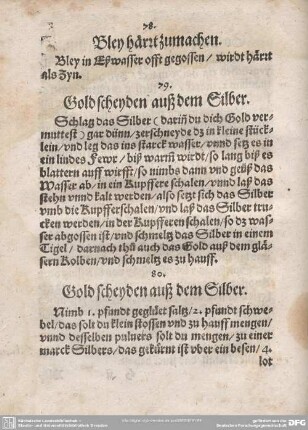 78.
Bley härtt zumachen.
Bley in Eßwasser offt gegossen / wirdt härtt
als Zyn.
79.
Gold scheyden auß dem Silber.
Schlag das Silber ( dariñ du dich Gold ver-
muttest ) gar dünn / zerschneyde dz in kleine stück-
lein / vnd leg das ins starck wasser / vnnd setz es in
ein lindes Fewr / biß warm wirdt / so lang biß es
blattern auff wirfft / so nimbs dann vnd geüß das
Wasser ab / in ein Kupffere schalen / vnnd laß das
stehn vnnd kalt werden / also setzt sich das Silber
vmb die Kupfferschalen / vnd laß das Silber tru-
cken werden / in der Kupfferen schalen / so dz was-
ser abgossen ist / vnd schmeltz das Silber in einem
Tigel / darnach thů auch das Gold auß dem gläs-
sern Kolben / vnd schmeltz es zu hauff.
80.
Gold scheyden auß dem Silber.
Nimb 1. pfundt geglüet saltz / 2. pfundt schwe-
bel / das solt du klein stossen vnd zu hauff mengen /
vnnd desselben puluers solt du mengen / zu einer
marck Silbers / das gekürnt ist vber ein besen / 4.
lot